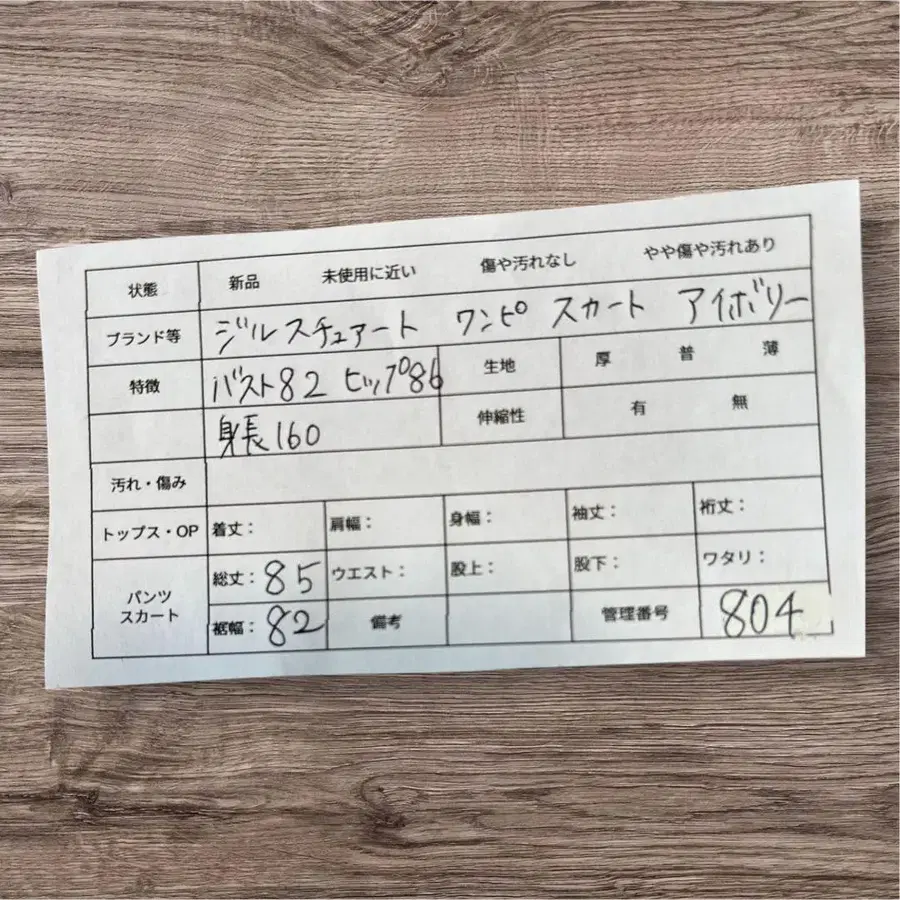 状態 新品 未使用に近い 傷や汚れなし やや傷や汚れあり
ブランド等 ジルスチュアート ワンピ スカート アイボリー
特徴 バスト82 ヒップ86 生地 厚 普 薄
身長160 伸縮性 有 無
汚れ・傷み
トップス・OP 着丈： 肩幅： 身幅： 袖丈： 裄丈：
パンツ スカート 総丈：85 ウエスト： 股上： 股下： ワタリ：
裾幅：82 備考 管理番号 804